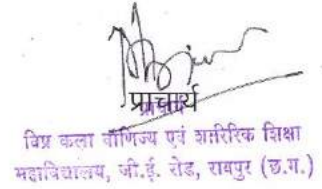 प्राचार्य
विप्र कला वाणिज्य एवं शारीरिक शिक्षा
महाविद्यालय, जी.ई. रोड, रायपुर (छ.ग.)